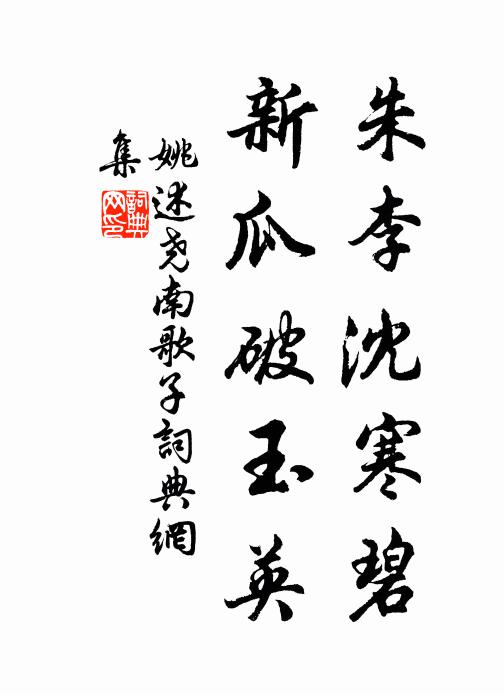 朱李沈寒碧
新瓜破玉英
姚述尧南歌子詞典網
集
詞典
网印